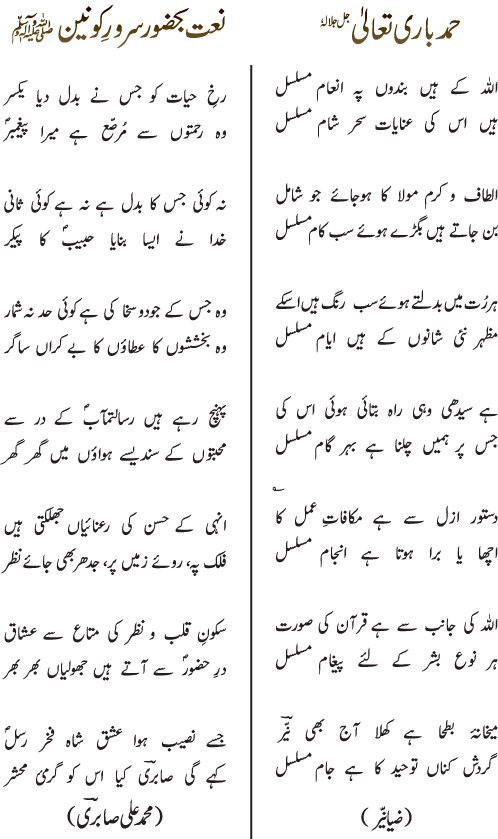 حمد باری تعالیٰ جل جلالہٗ
اللہ کے ہیں بندوں پہ انعام مسلسل
ہیں اس کی عنایات سحر شام مسلسل
الطاف و کرم مولا کا ہوجائے جو شامل
بن جاتے ہیں بگڑے ہوئے سب کام مسلسل
ہر رُت میں بدلتے ہوئے سب رنگ ہیں اسکے
مظہر نئی شانوں کے ہیں ایام مسلسل
ہے سیدھی وہی راہ بتائی ہوئی اس کی
جس پر ہمیں چلنا ہے بہر گام مسلسل
دستور ازل سے ہے مکافاتِ عمل کا
اچھا یا برا ہوتا ہے انجام مسلسل
اللہ کی جانب سے ہے قرآن کی صورت
ہر نوع بشر کے لئے پیغام مسلسل
میخانۂ بطحا ہے کھلا آج بھی نیّر
گردش کناں توحید کا ہے جام مسلسل
(ضیا نیّر)
نعت بحضور سرورِ کونین ﷺ
رخِ حیات کو جس نے بدل دیا یکسر
وہ رحمتوں سے مُرصّع ہے میرا پیغمبرؐ
نہ کوئی جس کا بدل ہے نہ ہے کوئی ثانی
خدا نے ایسا بنایا حبیبؐ کا پیکر
وہ جس کے جود و سخا کی ہے کوئی حد نہ شمار
وہ بخششوں کا عطاؤں کا بے کراں ساگر
پہنچ رہے ہیں رسالتمآبؐ کے در سے
محبتوں کے سندیسے ہواؤں میں گھر گھر
انہی کے حسن کی رعنائیاں جھلکتی ہیں
فلک پہ، روئے زمیں پر، جدھر بھی جائے نظر
سکونِ قلب و نظر کی متاع سے عشاق
درِ حضورؐ سے آتے ہیں جھولیاں بھر بھر
جسے نصیب ہوا عشق شاہ فخر رسلؐ
کہے گی صابریؔ کیا اس کو گرمیٔ محشر
(محمد علی صابریؔ)